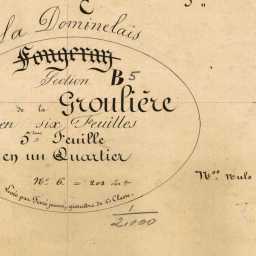 C
La Dominelais
Fougeray
Section B5
de la Groulière
en six Feuilles
5me Feuille
en un Quartier
Nos 6 =
Levé par géomètre de 1e Classe.
1
2.000